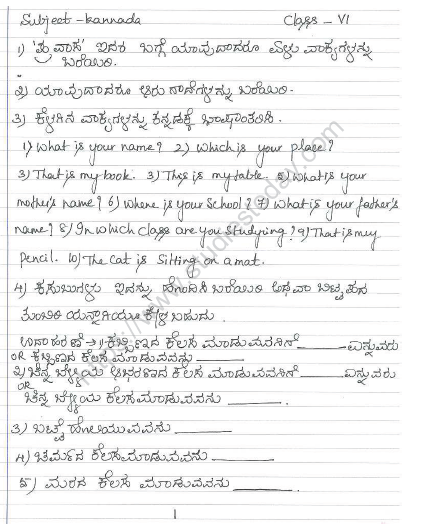 Subject - kannada Class - VI
1) 'ಪ್ರವಾಸ' ಇದರ ಬಗ್ಗೆ ಯಾವುದಾದರೂ ಏಳು ವಾಕ್ಯಗಳನ್ನು
ಬರೆಯಿರಿ.
೨) ಯಾವುದಾದರೂ ಆರು ಗಾದೆಗಳನ್ನು ಬರೆಯಿರಿ.
೩) ಕೆಳಗಿನ ವಾಕ್ಯಗಳನ್ನು ಕನ್ನಡಕ್ಕೆ ಭಾಷಾಂತರಿಸಿ.
1) What is your name? 2) Which is your place?
3) That is my book. 3) This is my table. 5) What is your
mother's name? 6) Where is your School? 7) What is your father's
name? 8) In which class are you studying? 9) That is my
Pencil. 10) The Cat is Sitting on a mat.
೪) ಕಸುಬುಗಳು ಇದನ್ನು ಹೊಂದಿಸಿ ಬರೆಯಿರಿ ಅಥವಾ ಬಿಟ್ಟ ಸ್ಥಳ
ತುಂಬಿರಿ ಯನ್ನಾಗಿಯೂ ಕೇಳ ಬಹುದು.
ಉದಾಹರಣೆ → 1) ಕಬ್ಬಿಣದ ಕೆಲಸ ಮಾಡುವವನಿಗೆ ______ ಎನ್ನುವರು
OR ಕಬ್ಬಿಣದ ಕೆಲಸ ಮಾಡುವವನು ______
೨) ಚಿನ್ನ ಬೆಳ್ಳಿಯ ಆಭರಣದ ಕೆಲಸ ಮಾಡುವವನಿಗೆ ______ ಎನ್ನುವರು
OR
ಚಿನ್ನ ಬೆಳ್ಳಿಯ ಕೆಲಸಮಾಡುವವನು ______.
೩) ಬಟ್ಟೆ ಹೊಲಿಯುವವನು ______
೪) ಚರ್ಮದ ಕೆಲಸಮಾಡುವವನು ______
೫) ಮರದ ಕೆಲಸ ಮಾಡುವವನು ______.
1
https://www.studiestoday.com